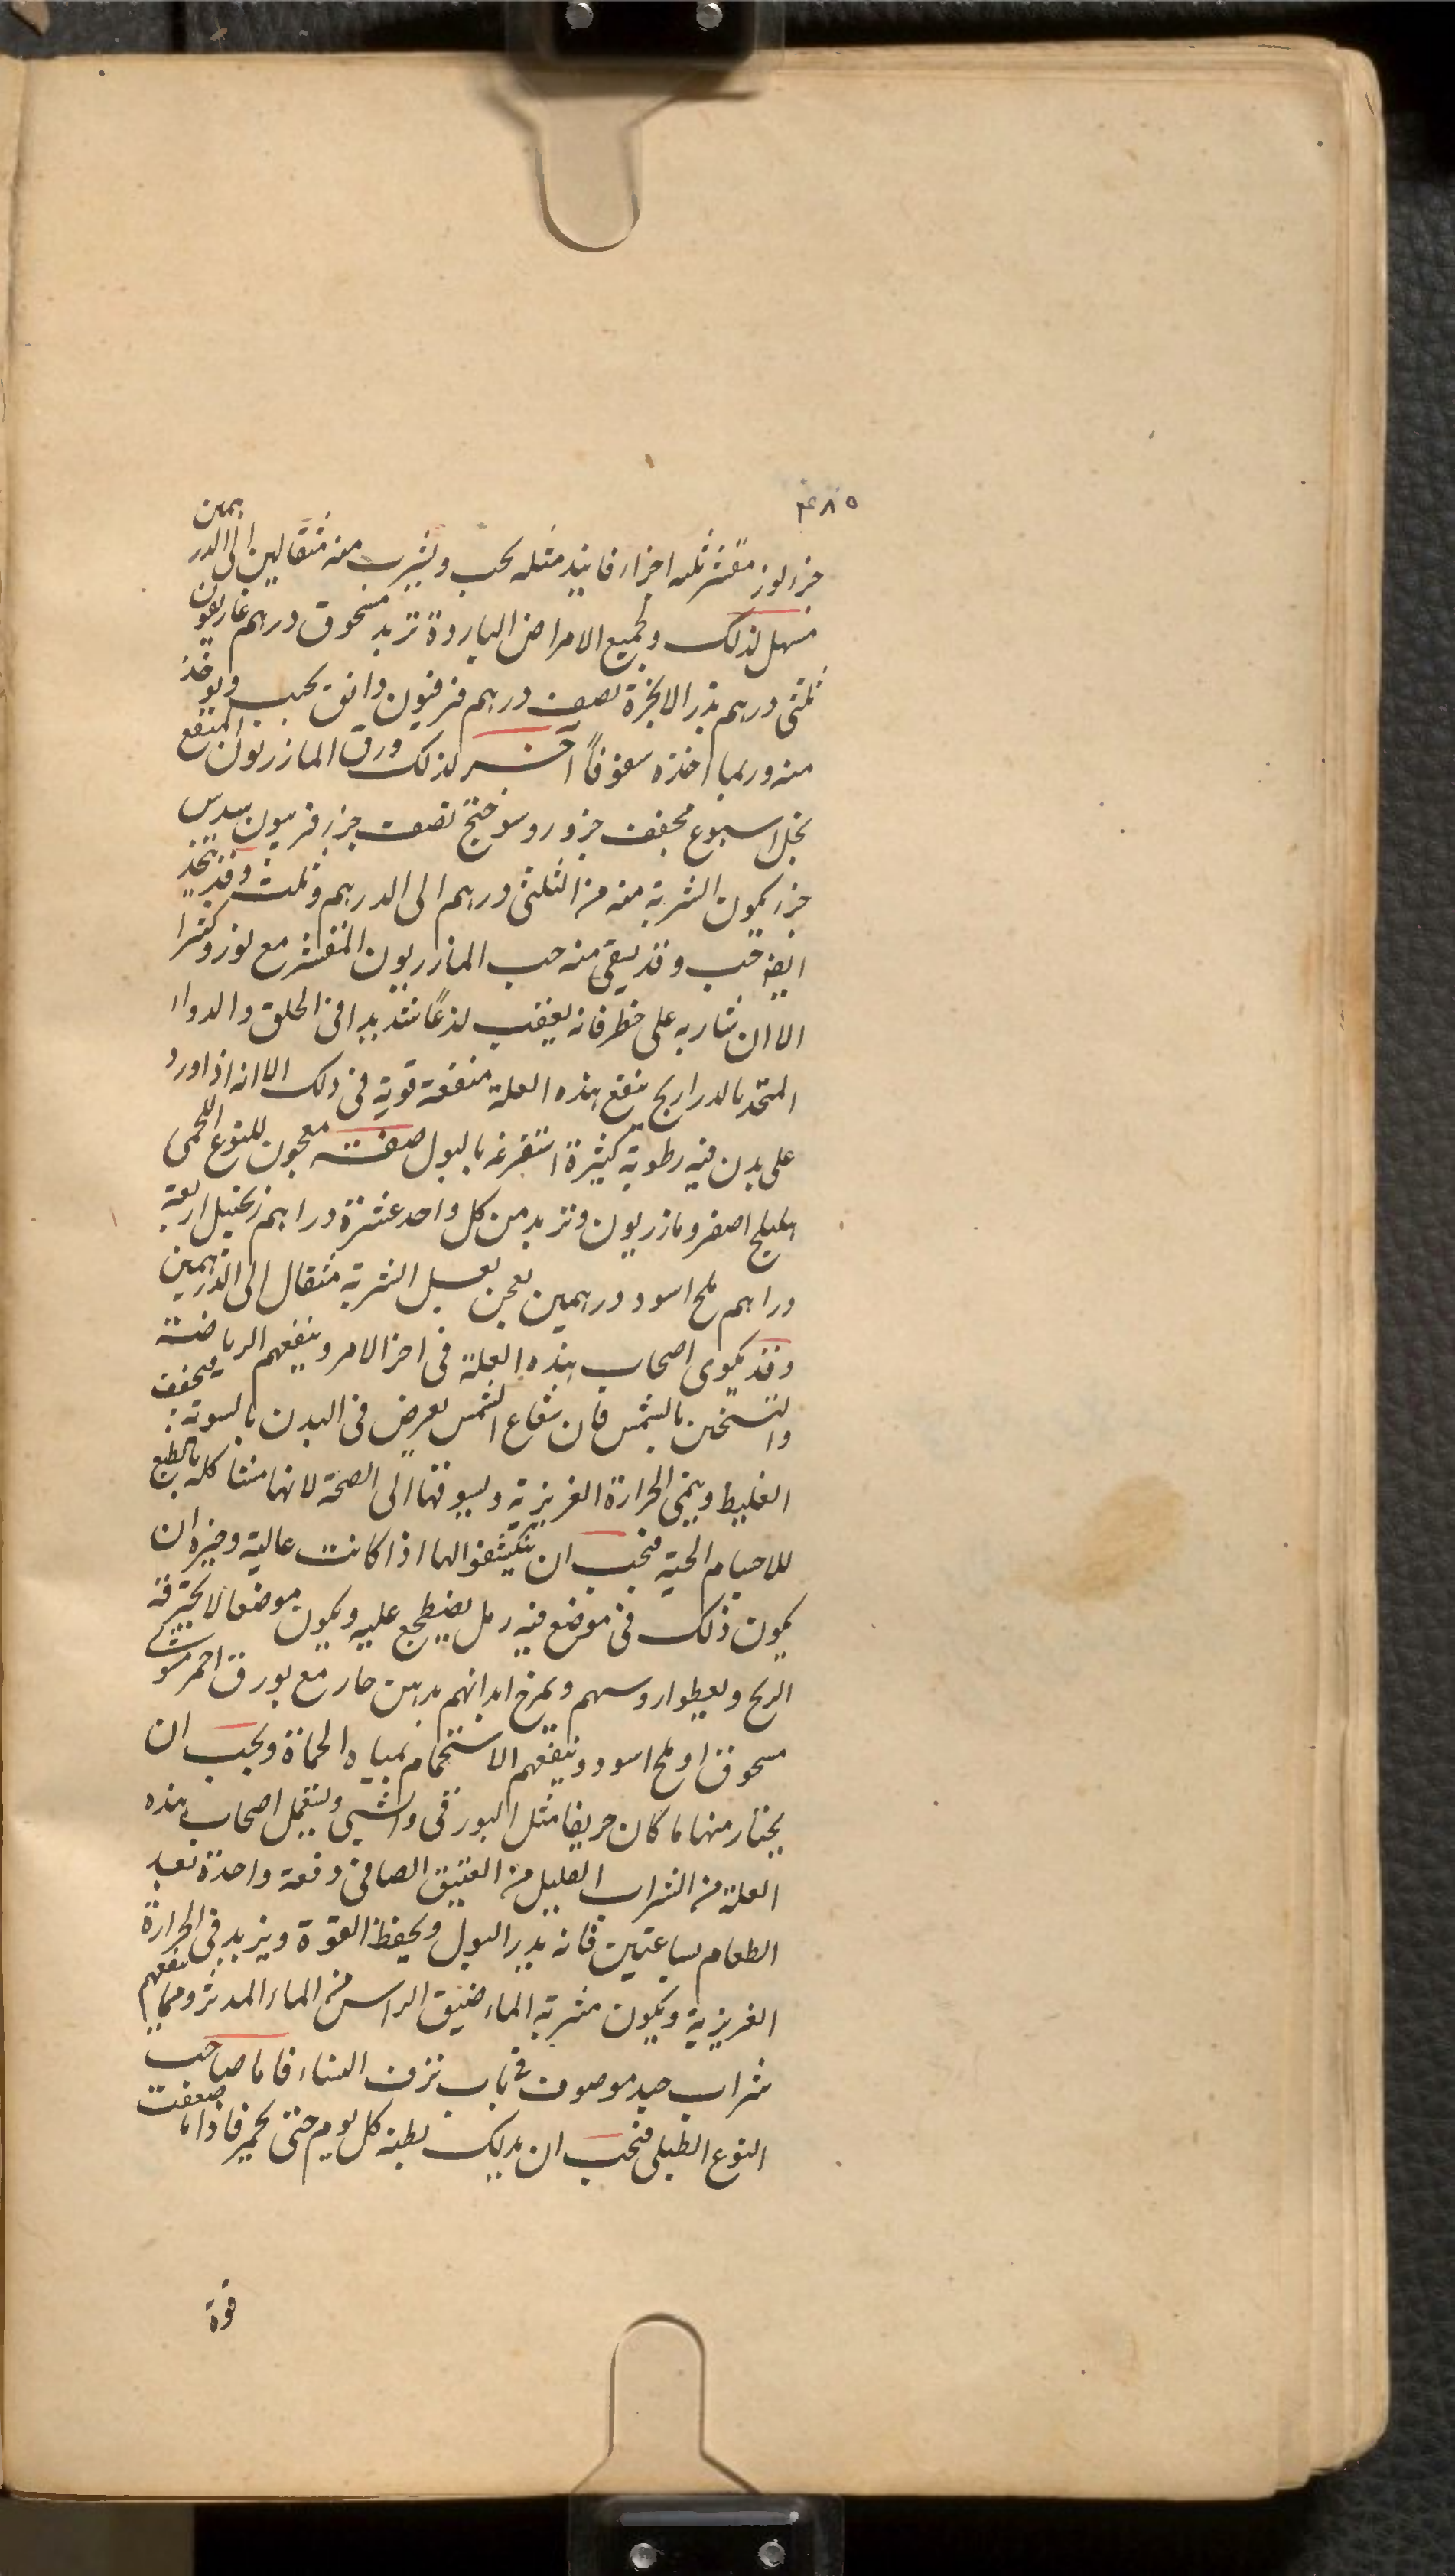 ٤٨٥
جزء لوز مقشر ثلثه اجزاء فانيذ مثله يحبب ويشرب منه مثقالين الى الدرهمين
مسهل لذلك ولجميع الامراض الباردة تربد مسحوق درهم غاريقون
ثلثى درهم بذر الانجرة نصف درهم فرفيون دانق يحبب ويوخذ
منه وربما اخذه سفوفاً آخر لذلك ورق المازريون المنقع
بخل اسبوع مجفف جزو روسوختج نصف جزء فربيون سدس
جزء كمون الشربة منه من الثلثى درهم الى الدرهم وثلث وقد يتخذ
ايضا حب وقد يسقى منه حب المازريون المقشر مع لوز وكثيرا
الا ان شاربه على خطر فانه يعقب لذعًا شديدا فى الحلق والدواء
المتخذ بالدراريح ينفع هذه العلة منفعة قوية فى ذلك الا انه اذا ورد
على بدن فيه رطوبة كثيرة استفرغه بالبول صفة معجون للنوع اللحمى
اهليلج اصفر ومازريون وتربد من كل واحد عشرة دراهم زنجبيل اربعة
دراهم ملح اسود درهمين يعجن بعسل الشربة مثقال الى الدرهمين
وقد يكوى اصحاب هذه العلة فى اخر الامر وينفعهم الرياضة
والتسخن بالشمس فان شعاع الشمس يعرض فى البدن يابسوته فيجفف
الغليظ وينمى الحرارة الغريزية ويسوقها الى الصحة لانها مشاكلة بالطبع
للاجسام الحية فيجب ان يتكشفوا لها اذا كانت عالية وخيره ان
يكون ذلك فى موضع فيه رمل يضطجع عليه ويكون موضعا لا يخترقه
الريح ويعطوا روسهم ويمرخ ابدانهم بدهن حار مع بورق احمر مشوى
مسحوق او ملح اسود وينفعهم الاستحمام بمياه الحماة ويجب ان
يختار منها ما كان حريفا مثل البورقى والشبى وليتعمل اصحاب هذه
العلة من الشراب القليل من العتيق الصافى دفعة واحدة بعد
الطعام بساعتين فانه يدر البول ويحفظ القوة ويزيد فى الحرارة
الغريزية ويكون مشربة الماء ضيق الراس من الماء المدثر ومما ينفعهم
شراب جيد موصوف فى باب نزف النساء فاما صاحب
النوع الطبلى فيجب ان يدلك بطنه كل يوم حتى يحمر فاذا ما ضعفت
قوة